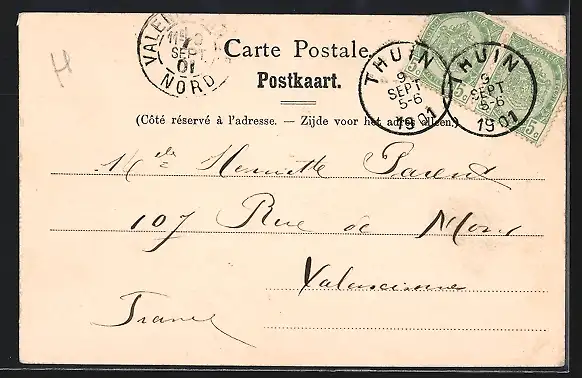 VALEN
SEPT
01
NORD
H
Carte Postale.
Postkaart.
THUIN
9
SEPT
5-6
1901
THUIN
9
SEPT
5-6
1901
5c
(Côté réservé à l'adresse. — Zijde voor het adres alleen.)
Mlle Henriette Parent
107 Rue de Mons
Valencienne
France